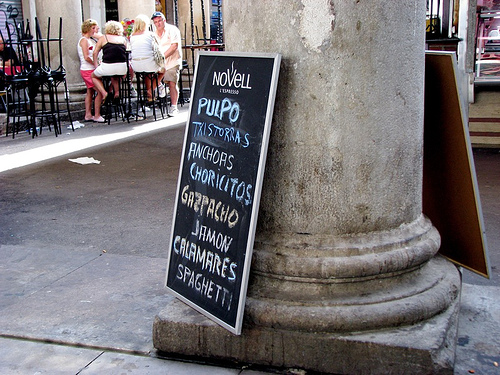 NOVELL
L'ESPRESSO
PULPO
TXISTORRAS
ANCHOAS
CHORICITOS
GAZPACHO
JAMON
CALAMARES
SPAGHETTI